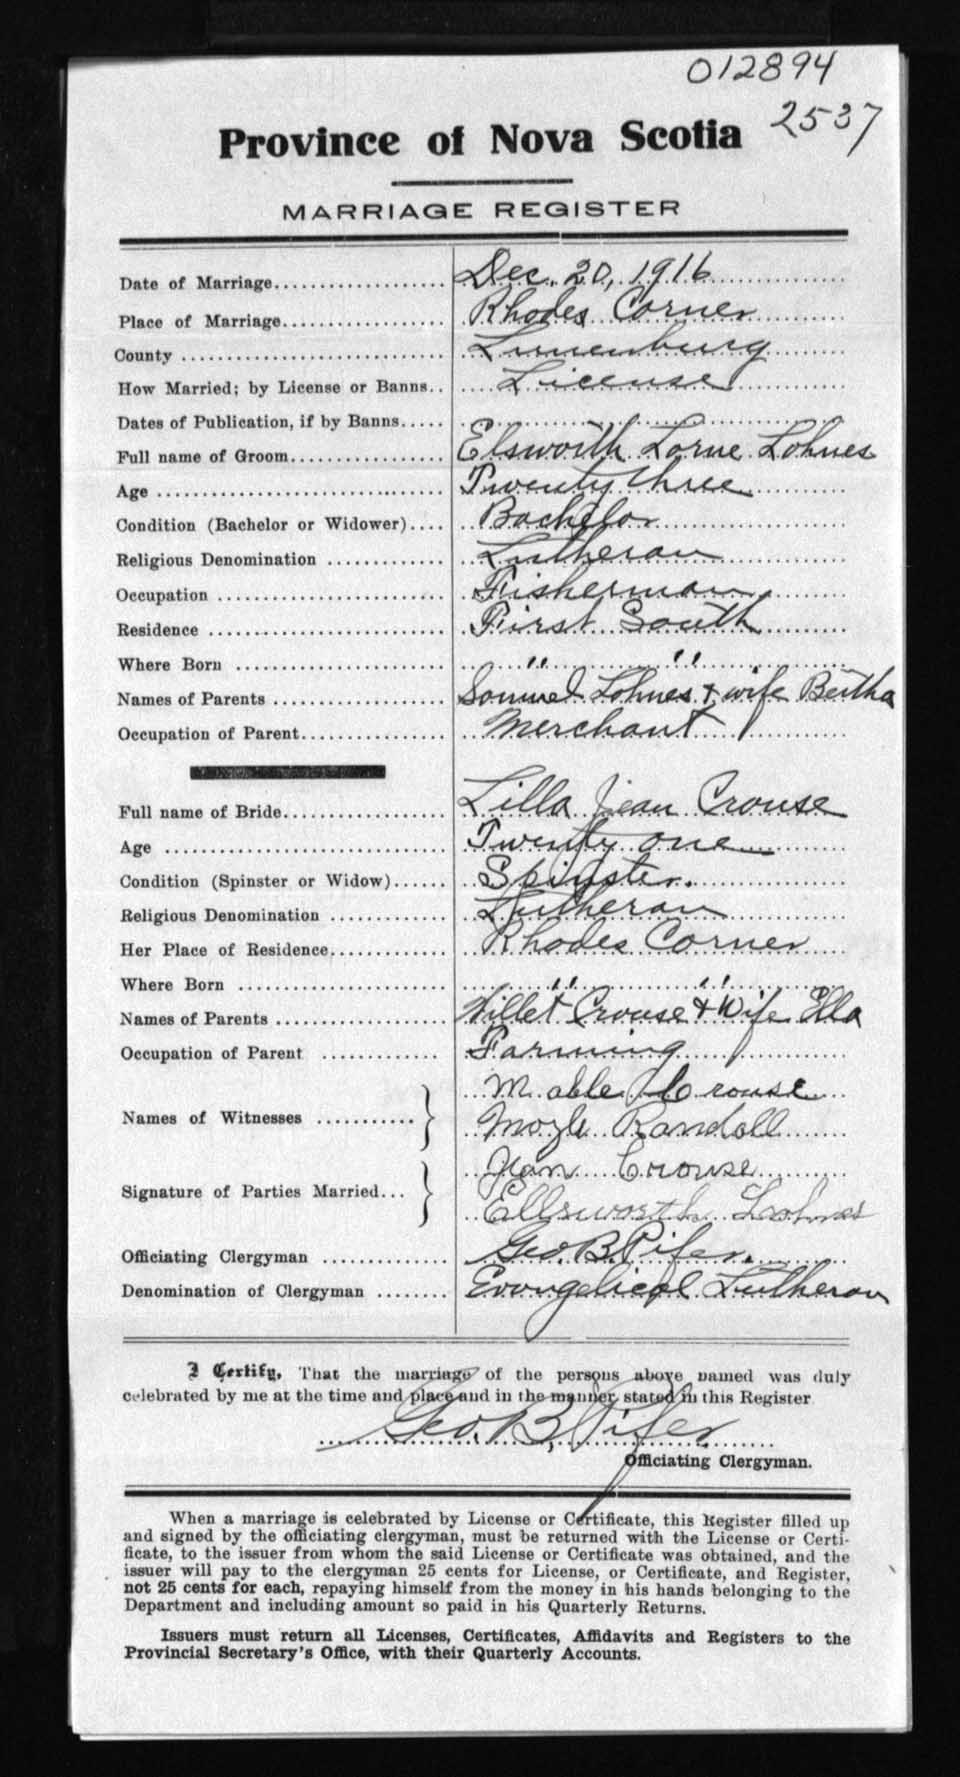 012894
2537
Province of Nova Scotia
MARRIAGE REGISTER
Date of Marriage.................... Dec. 20, 1916
Place of Marriage.................. Rhodes Corner
County ............................ Lunenburg
How Married; by License or Banns.. License
Dates of Publication, if by Banns.....
Full name of Groom................. Elsworth Lorne Lohnes
Age ............................... Twenty three
Condition (Bachelor or Widower).... Bachelor
Religious Denomination ............. Lutheran
Occupation ......................... Fisherman
Residence .......................... First South
Where Born ........................ " "
Names of Parents ................... Samuel Lohnes & wife Bertha
Occupation of Parent................ Merchant
Full name of Bride.................. Lilla Jean Crouse
Age ............................... Twenty one
Condition (Spinster or Widow)...... Spinster.
Religious Denomination ............. Lutheran
Her Place of Residence............. Rhodes Corner
Where Born ........................ " "
Names of Parents ................... Willet Crouse & Wife Ella
Occupation of Parent ............. Farming
Mable Crouse
Names of Witnesses ............
Randall
Jean Crouse
Signature of Parties Married...
Ellsworth Lohnes
Officiating Clergyman .............. Geo. B. Pifer.
Denomination of Clergyman ........ Evangelical Lutheran
I Certify, That the marriage of the persons above named was duly
celebrated by me at the time and place and in the manner stated in this Register
Geo. B. Pifer
Officiating Clergyman.
When a marriage is celebrated by License or Certificate, this Register filled up
and signed by the officiating clergyman, must be returned with the License or Certi-
ficate, to the issuer from whom the said License or Certificate was obtained, and the
issuer will pay to the clergyman 25 cents for License, or Certificate, and Register,
not 25 cents for each, repaying himself from the money in his hands belonging to the
Department and including amount so paid in his Quarterly Returns.
Issuers must return all Licenses, Certificates, Affidavits and Registers to the
Provincial Secretary's Office, with their Quarterly Accounts.